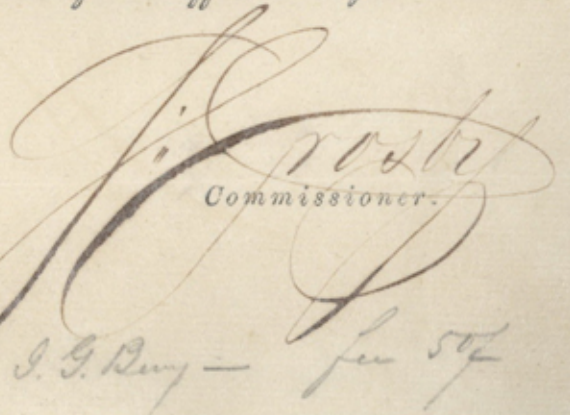 J. Crosby
Commissioner.
J. G. Berry — fee 50¢